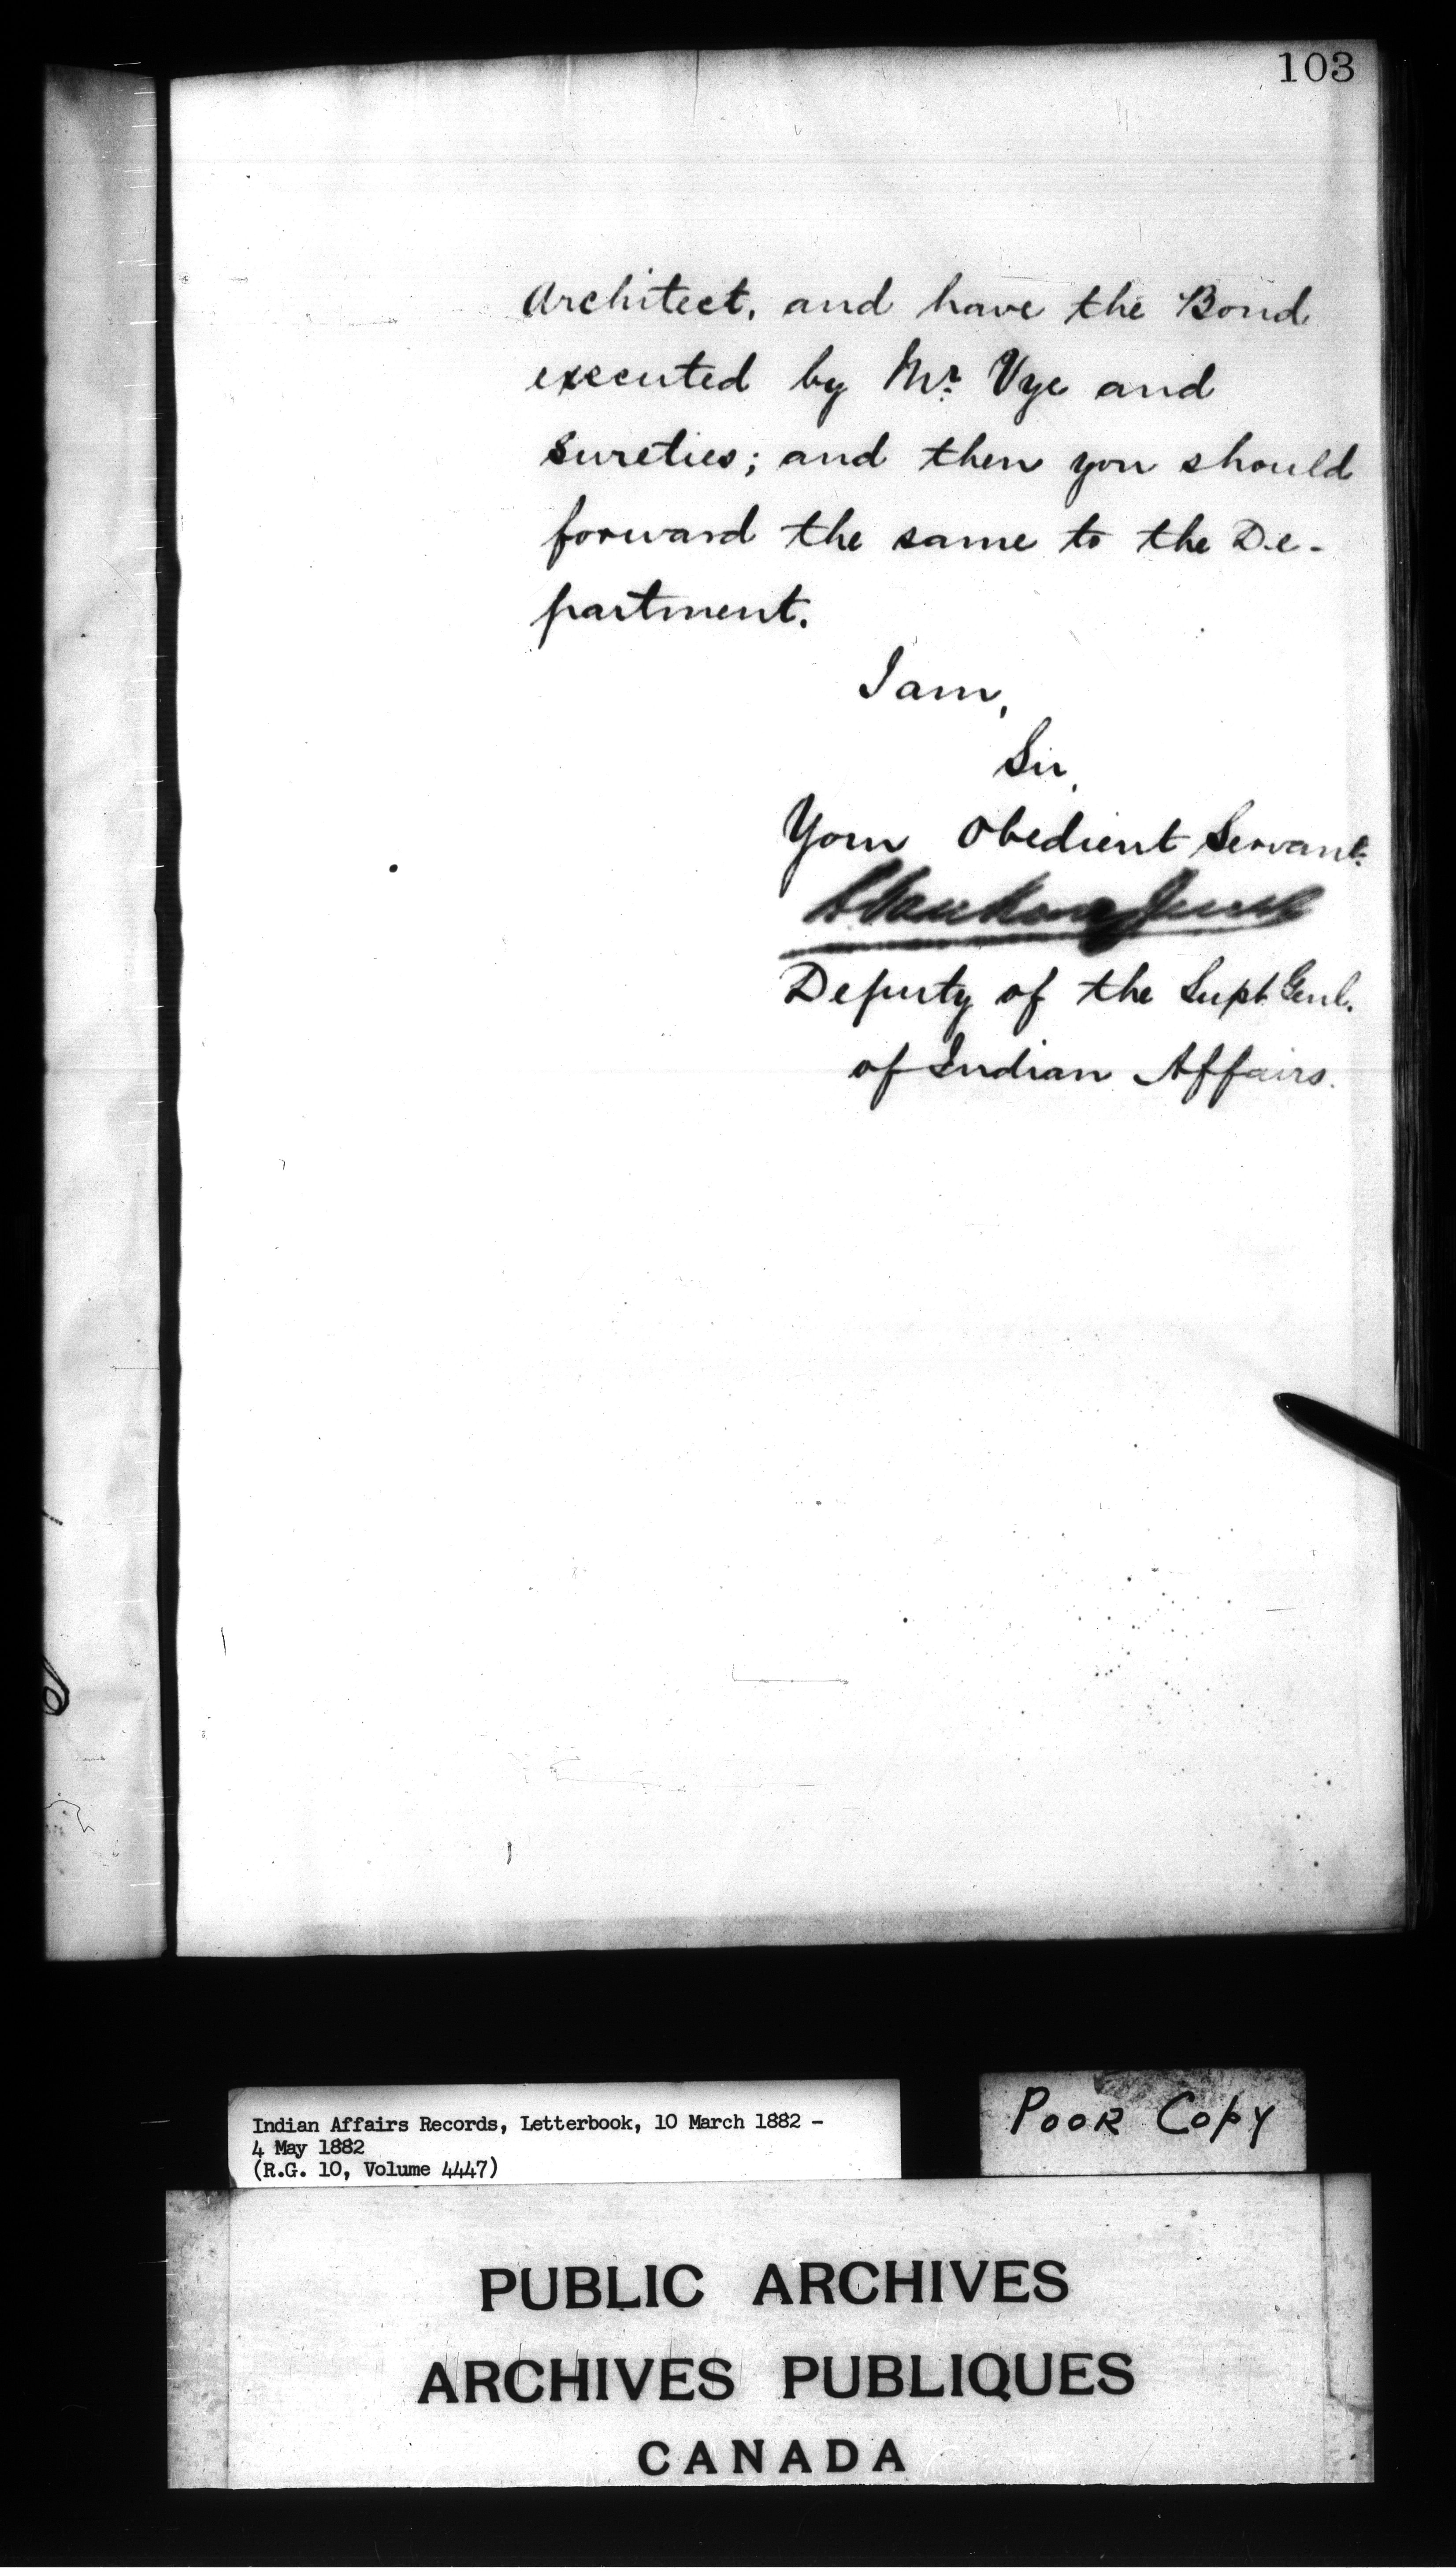 103
Architect, and have the Bond
executed by Mr. Vye and
Sureties; and then you should
forward the same to the De-
partment.
I am,
Sir,
Your Obedient Servant.
Deputy of the Supt Genl.
of Indian Affairs.
Indian Affairs Records, Letterbook, 10 March 1882 -
4 May 1882
(R.G. 10, Volume 4447)
POOR COPY
PUBLIC ARCHIVES
ARCHIVES PUBLIQUES
CANADA